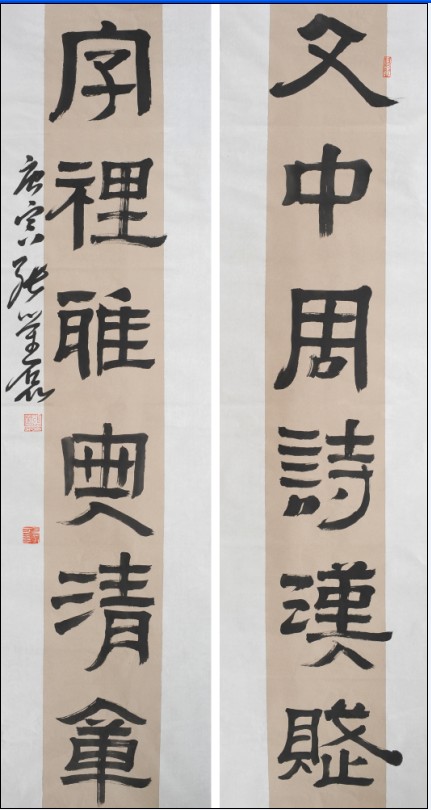 文中周詩漢賦
字裡雅典清
庚寅張